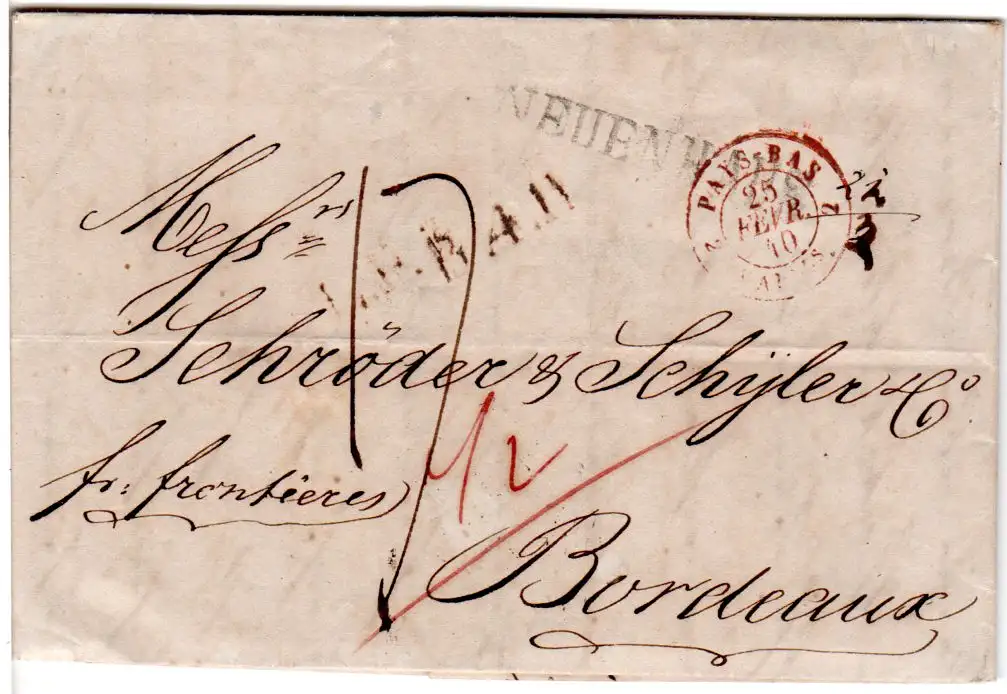 NEUENHAUS
PAYS-BAS
25
FEVR.
40
2 2
L.P.B.4.R
Messrs
Schröder & Schÿler & Co
fr: frontières
Bordeaux